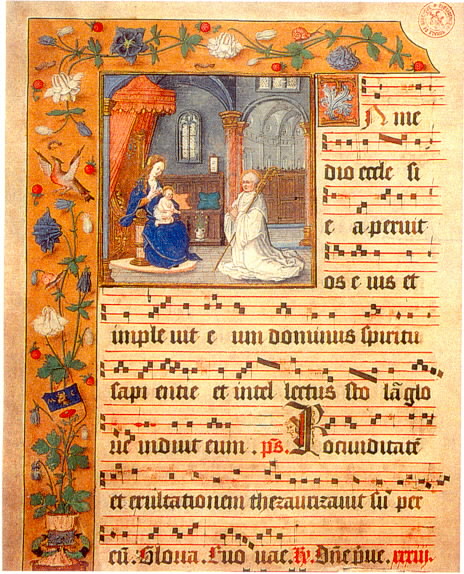 IN me
dio eccle si
e aperuit
os e ius et
imple uit e um dominus spiritu
sapi entie et intel lectus sto lā glo
rie induit eum . ps. Iocunditatē
et exultationem thezaurizauit suꝑ
eū. Gloria. Euo uae. Dñe